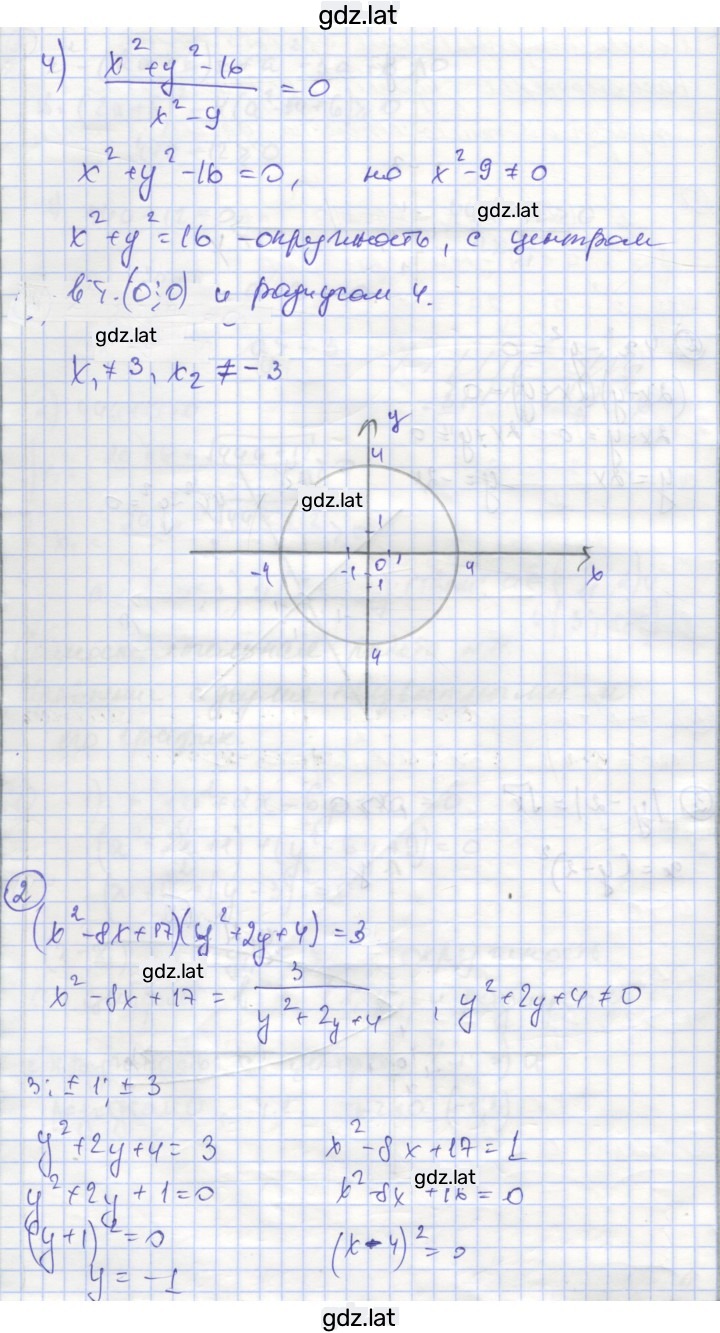 gdz.lat
4) (x²+y²-16)/(x²-9) = 0
x²+y²-16=0, но x²-9≠0
gdz.lat
x²+y²=16 - окружность, с центром
в т.(0;0) и радиусом 4.
gdz.lat
x₁≠3, x₂≠-3
y
4
gdz.lat
1
-4 -1 0 1 4 x
-1
4
2
(x²-8x+17)(y²+2y+4)=3
gdz.lat
x²-8x+17 = 3/(y²+2y+4), y²+2y+4≠0
3; ±1; ±3
y²+2y+4=3 x²-8x+17=1
gdz.lat
y²+2y+1=0 x²-8x+16=0
(y+1)²=0 (x-4)²=0
y=-1
gdz.lat